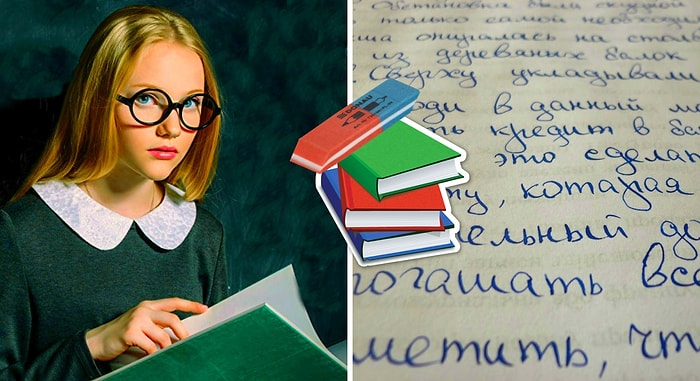 Обстановка была скудной
только самой необходи
ша опиралась на столб
из деревянных балок
Сверху укладывали
в данный м
ть кредит в ба
это сдела
которая
ельный до
погашать все
метить, чт